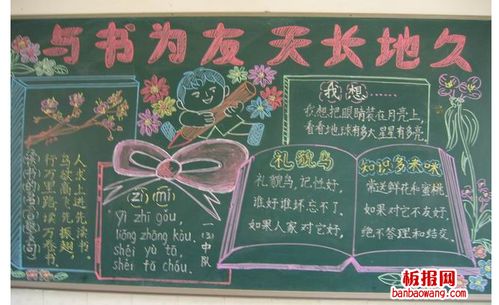 与书为友 天长地久
人求上进先读书,
鸟欲高飞先振翅,
行万里路,读万卷书
(zì mí)
yì zhī gǒu,
liǎng zhāng kǒu.
shéi yù tā,
shéi tā chóu.
一(3)中队
我想……
我想把眼睛装在月亮上,
看看地球有多大星星有多亮.
礼貌鸟
礼貌鸟,记性好,
谁好谁坏忘不了,
如果人家对它好,
知识多来咪
常送鲜花和蜜桃.
如果对它不友好,
绝不答理和结交.
板报网
banbaowang.com